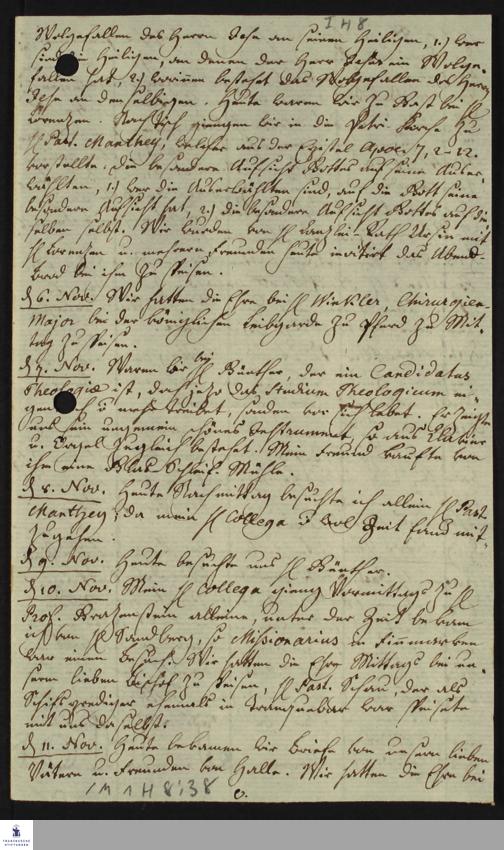 I H 8
Wolgefallen des Herrn Jesu an seinen Heiligen, 1.) wer
sind Heiligen, an denen der Herr Jesus ein Wolge-
fallen hat, 2.) worinnen bestehet das Wolgefallen des Herrn
Jesu an denselbigen. Heute waren wir zu Gast bei H
Lorenzen. Nach Tisch giengen wir in die Petri Kirche zu
H Past. Manthey, welcher aus der Epistel Apoc. 7, 2-12.
vorstellte. die besondere Aufsicht Gottes auf seine Auser-
wählten, 1.) wer die Auserwählten sind, auf die Gott seine
besondere Aufsicht hat, 2.) die besondere Aufsicht Gottes auf die
selben selbst. Wir wurden von H Canzlei-Rath Ursin mit
H Lorenzen u. mehrern Freunden heute invitirt das Abend-
brod bei ihm zu speisen.
d 6. Nov. Wir hatten die Ehre bei H Winkler Chirurgien
Major bei der königlichen Leibgarde zu Pferd zu Mit-
tag zu speisen.
d 7. Nov. Waren wir bey H Günther, der ein Candidatus
Theologiæ ist, doch so das Studium Theologicum ei-
gen nicht mehr treibet, sondern vor sich lebet. Er zeigte
uns sein ungemein schönes Instrument, so aus Clavier
u. Orgel zugleich bestehet. Mein Freund kaufte von
ihm eine Glas Schleif-Mühle.
d 8. Nov. Heute Nachmittag besuchte ich allein H Past.
Manthey, da mein H Collega Zeit fand mit-
zugehen.
d 9. Nov. Heute besuchte uns H Günther.
d 10. Nov. Mein H Collega gieng Vormittags zu H
Prof. Kratzenstein alleine, unter der Zeit bekam
ich von H Sandberg, so Missionarius in Finnmarken
war einen Besuch. Wir hatten die Ehre Mittags bei un-
serm lieben Bischof zu speisen, H Past. Schau, der als
Schifsprediger ehemals in Tranquebar war speisete
mit uns daselbst.
d 11. Nov. Heute bekamen wir Briefe von unsern lieben
Vätern u. Freunden von Halle. Wir hatten die Ehre bei
1 M 1 H 8 : 38